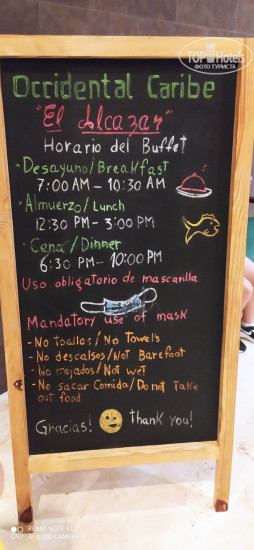 TOP Hotels
ФОТО ТУРИСТА
Occidental Caribe
"El Alcazar"
Horario del Buffet
· Desayuno/Breakfast
7:00 AM - 10:30 AM
· Almuerzo/Lunch
12:30 PM - 3:00 PM
· Cena/Dinner
6:30 PM - 10:00 PM
Uso obligatorio de mascarilla
Mandatory use of mask
- No toallas/No Towels
- No descalsos/Not Barefoot
- No mojados/Not wet
- No sacar Comida/Do not Take
out food
Gracias! thank you!
REDMI NOTE 8T
AI QUAD CAMERA